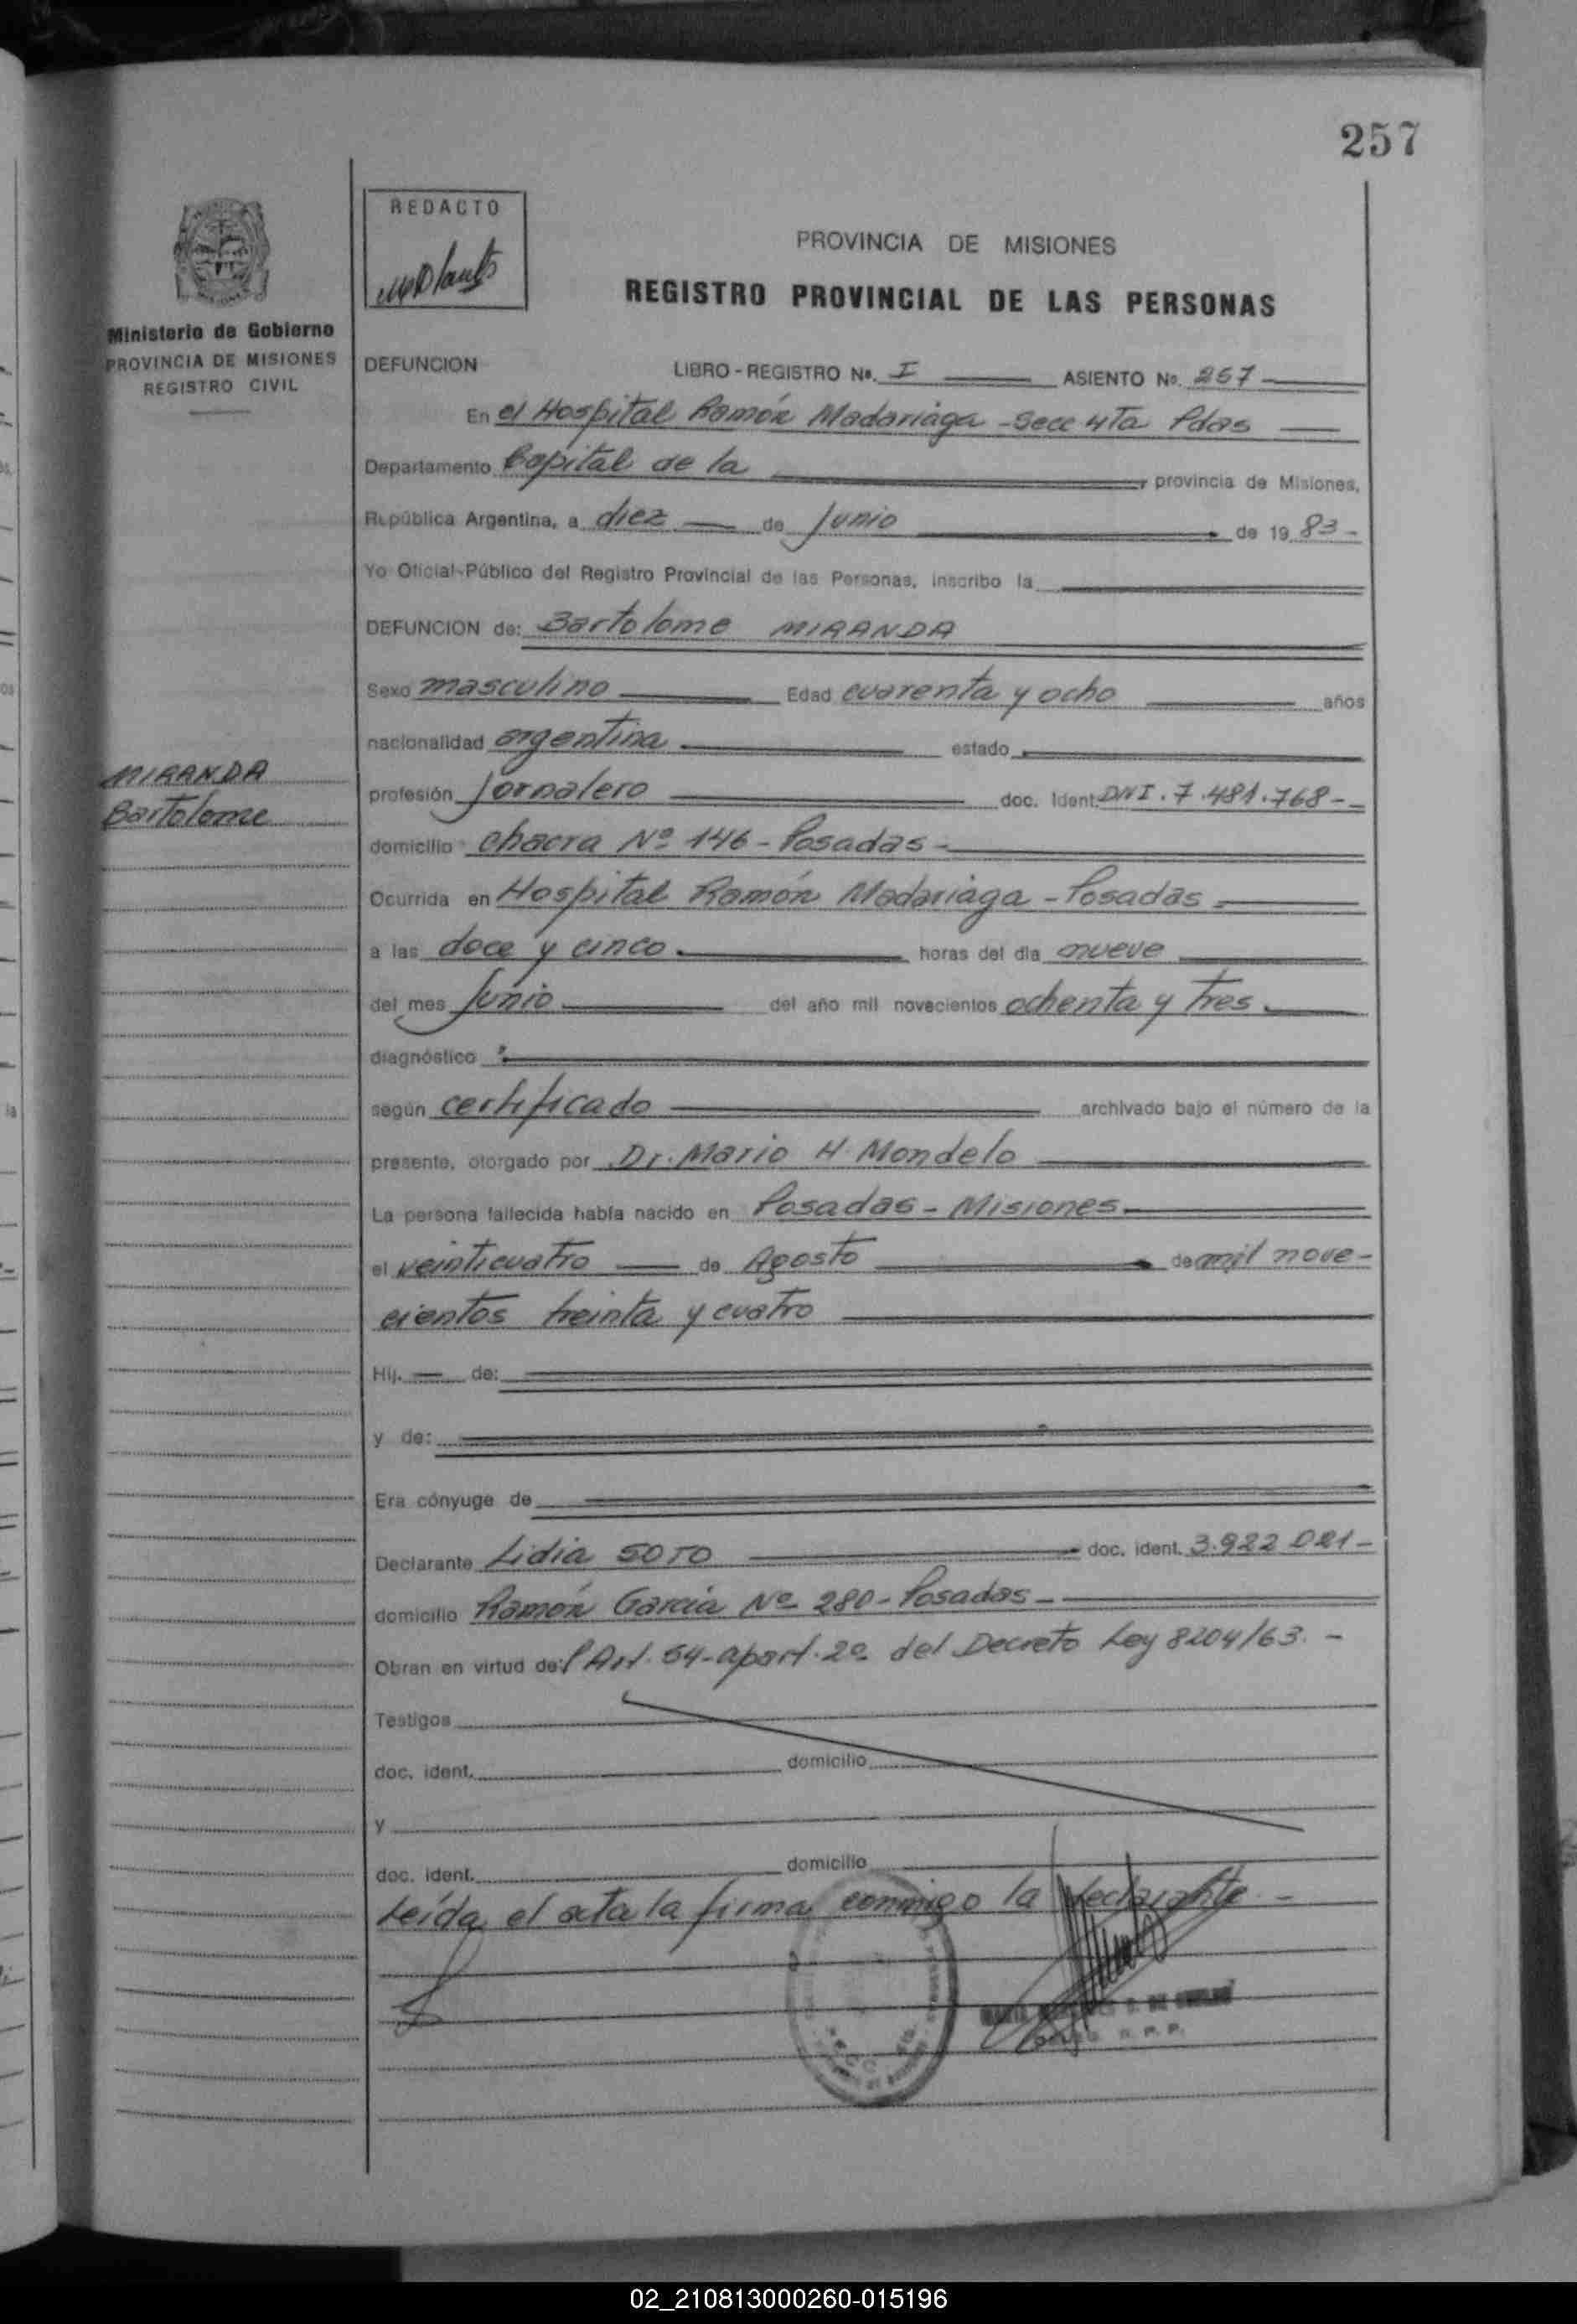 257
REDACTO
PROVINCIA DE MISIONES
REGISTRO PROVINCIAL DE LAS PERSONAS
Ministerio de Gobierno
PROVINCIA DE MISIONES
REGISTRO CIVIL
DEFUNCION LIBRO - REGISTRO Nº. I ASIENTO No. 257
En el Hospital Ramón Madariaga - Secc 4Ta Pdas
Departamento Capital de la provincia de Misiones,
República Argentina, a diez de Junio de 19 83-
Yo Oficial-Público del Registro Provincial de las Personas, inscribo la
DEFUNCION de: Bartolome MIRANDA
Sexo masculino Edad cuarenta y ocho años
nacionalidad argentina estado
MIRANDA
Bartolome
profesión Jornalero doc. Ident. DNI. 7.481.768-
domicilio chacra Nº 146 - Posadas -
Ocurrida en Hospital Ramón Madariaga - Posadas
a las doce y cinco horas del día nueve
del mes Junio del año mil novecientos ochenta y tres
diagnóstico
según certificado archivado bajo el número de la
presente, otorgado por Dr. Mario H. Mondelo
La persona fallecida había nacido en Posadas - Misiones
el veinticuatro de Agosto de mil nove-
cientos treinta y cuatro
Hij. de:
y de:
Era cónyuge de
Declarante Lidia SOTO doc. ident. 3.922 021-
domicilio Ramón Garcia Nº 280 - Posadas -
Obran en virtud de l Art. 54 - apart. 2º del Decreto Ley 8204/63. -
Testigos
doc. ident. domicilio
y
doc. ident. domicilio
Leída el acta la firma conmigo la declarante -
R. P. P.
02_210813000260-015196